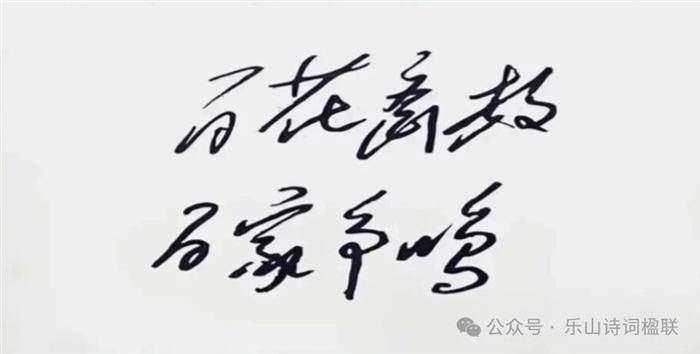 百花齐放
百家争鸣
公众号·乐山诗词楹联